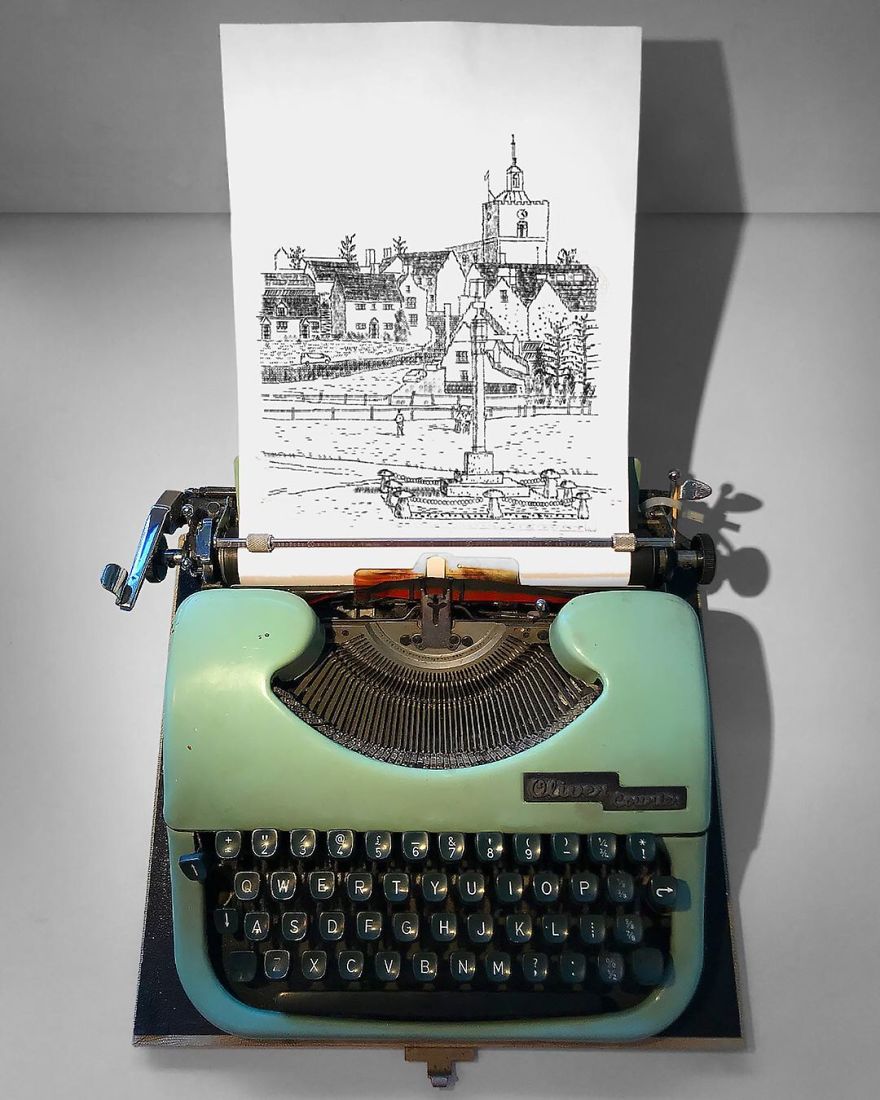 Oliver
Courier
" / @ £ _ & ' ( ) *
2 3 4 5 6 7 8 9 - !
Q W E R T Y U I O P
A S D F G H J K L
Z X C V B N M ? :